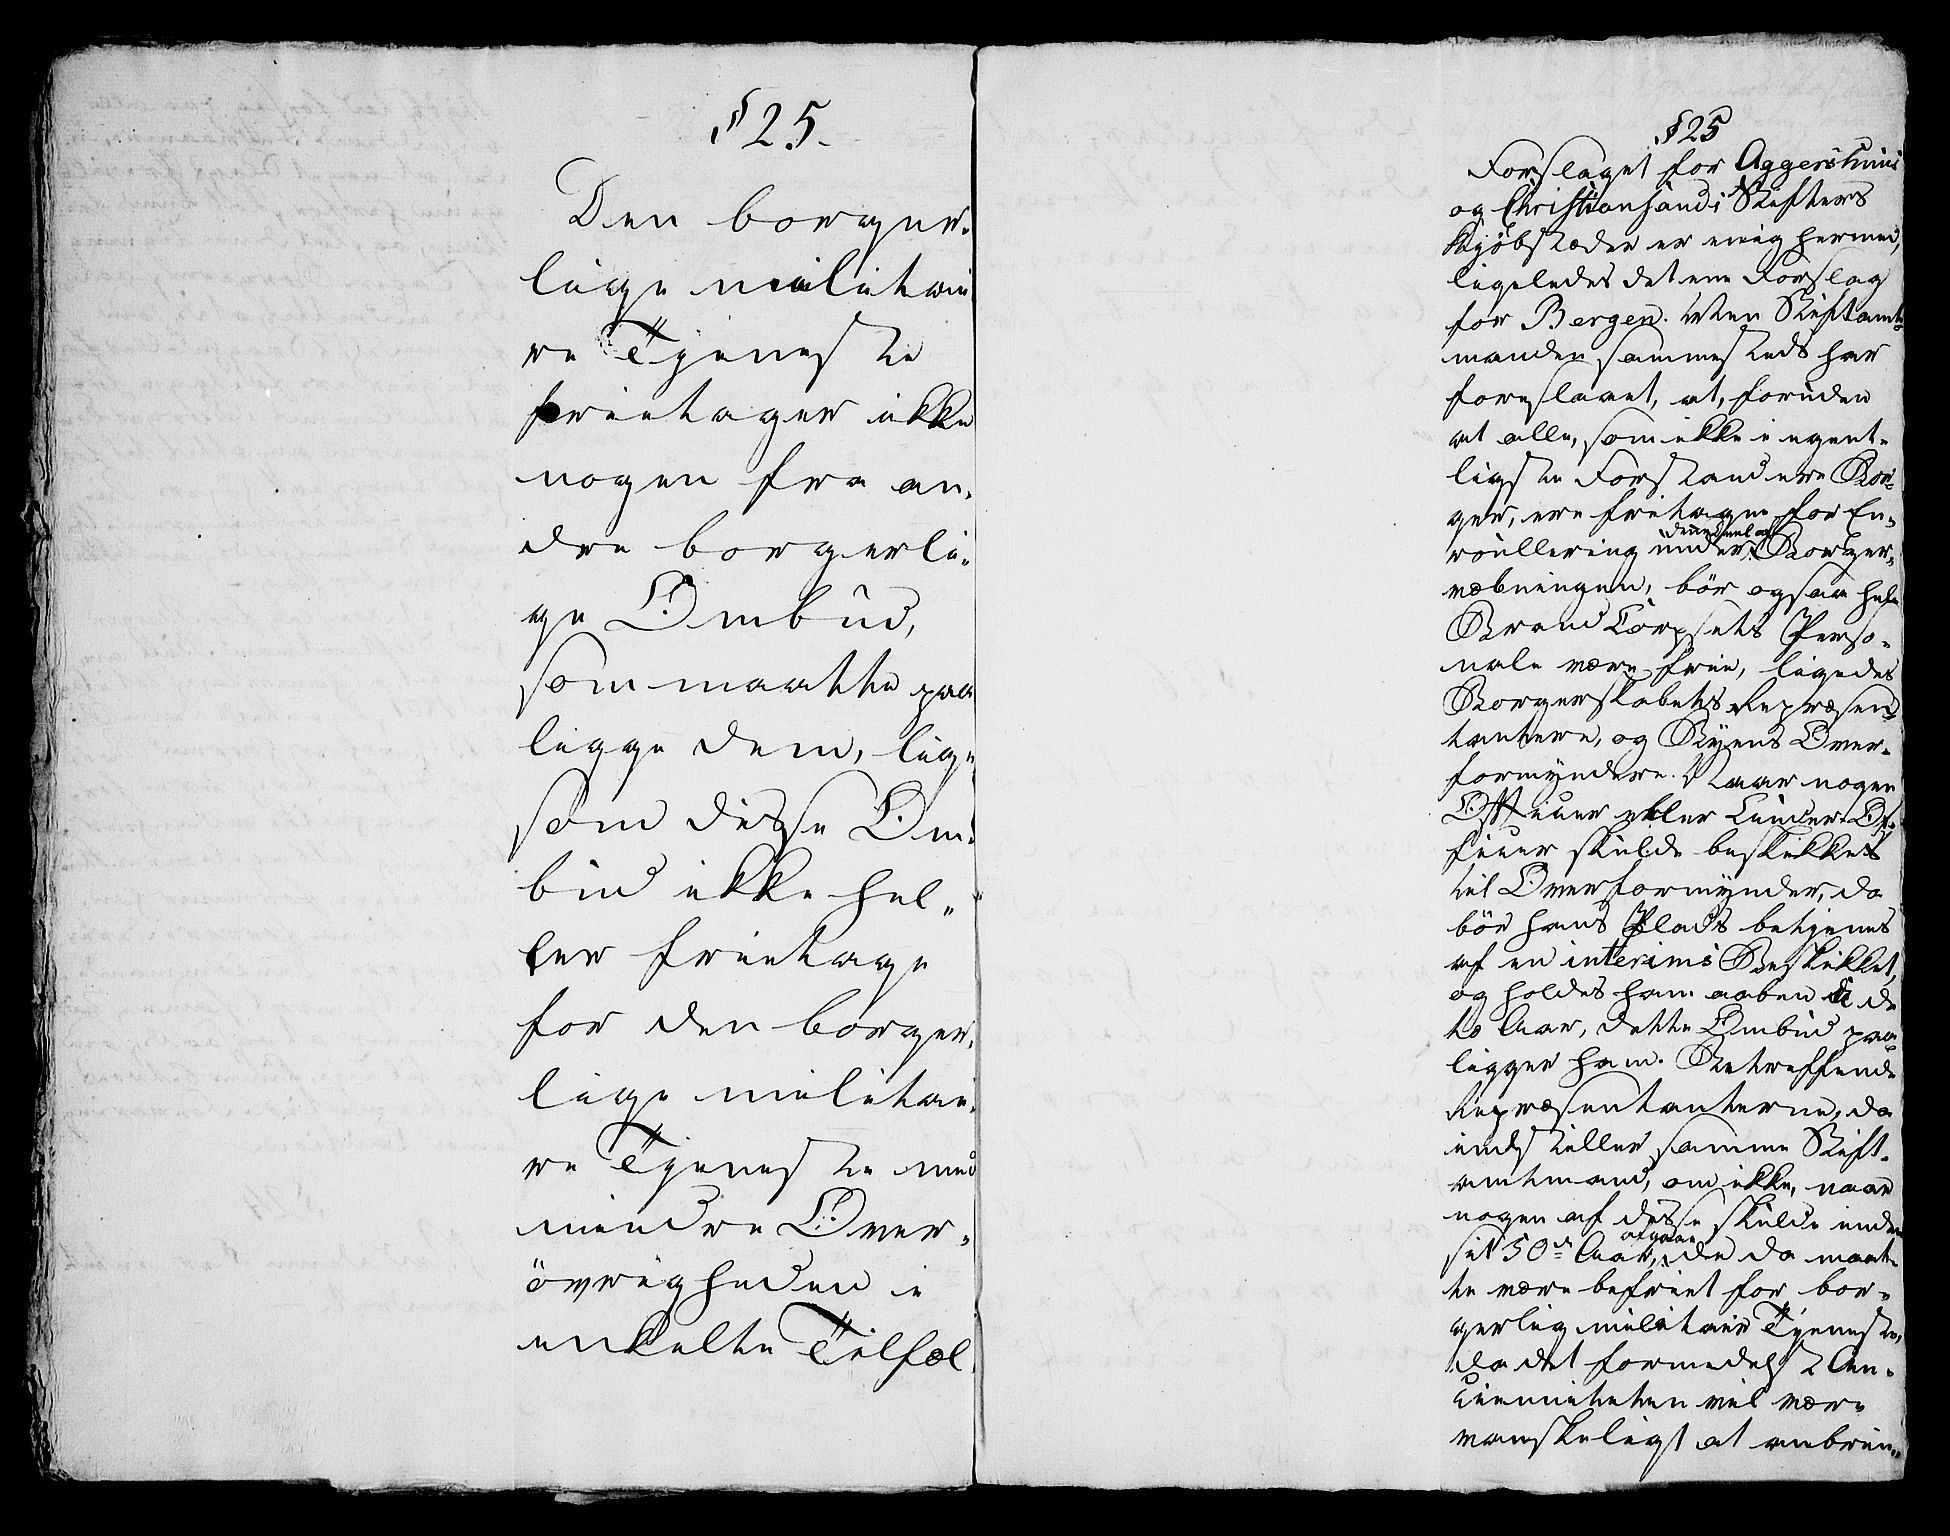 § 25.
Den borger-
lige militai-
re Tjeneste
frietager ikke
nogen fra an-
dre borgerli-
ge Ombud,
som maatte paa
ligge dem, lige
som disse Om-
bud ikke hel-
ler frietage
for den borger-
lige militai-
re Tjeneste med
mindre Over-
øvrigheden i
enkelte Tilfæl
§ 25
Forslaget for Aggershuus
og Christiansands Stifters
Kjøbstæder er enig hermed,
ligeledes det ene Forslag
for Bergen. Men Stiftamt-
manden sammesteds har
foreslaaet, at, foruden
at alle, som ikke i egent-
ligste Forstand ere Bor-
gere, ere fritagne for En-
roullering under Borger-
væbningen, bør ogsaa hele
Brand Corpsets Perso-
nale være frie, ligedes
Borgerskabets Repræsen-
tantere, og Byens Over-
formyndere. Naar nogen
Officeer eller Under-Of-
ficeer skulde beskikkes
til Overformynder, da
bør hans Plads betjenes
af en interims Beskikket,
og holdes ham aaben i de
to Aar, dette Ombud paa
ligger ham. Betreffende
Repræsentanterne, da
indstiller samme Stift-
amtmand, om ikke, naar
nogen af disse skulde inden
sit 50de Aar, afgaae de da maat-
te være befriet for bor-
gerlig militair Tjeneste,
da det formedelst An-
cienniteten vil være
vanskeligt at anbrin-